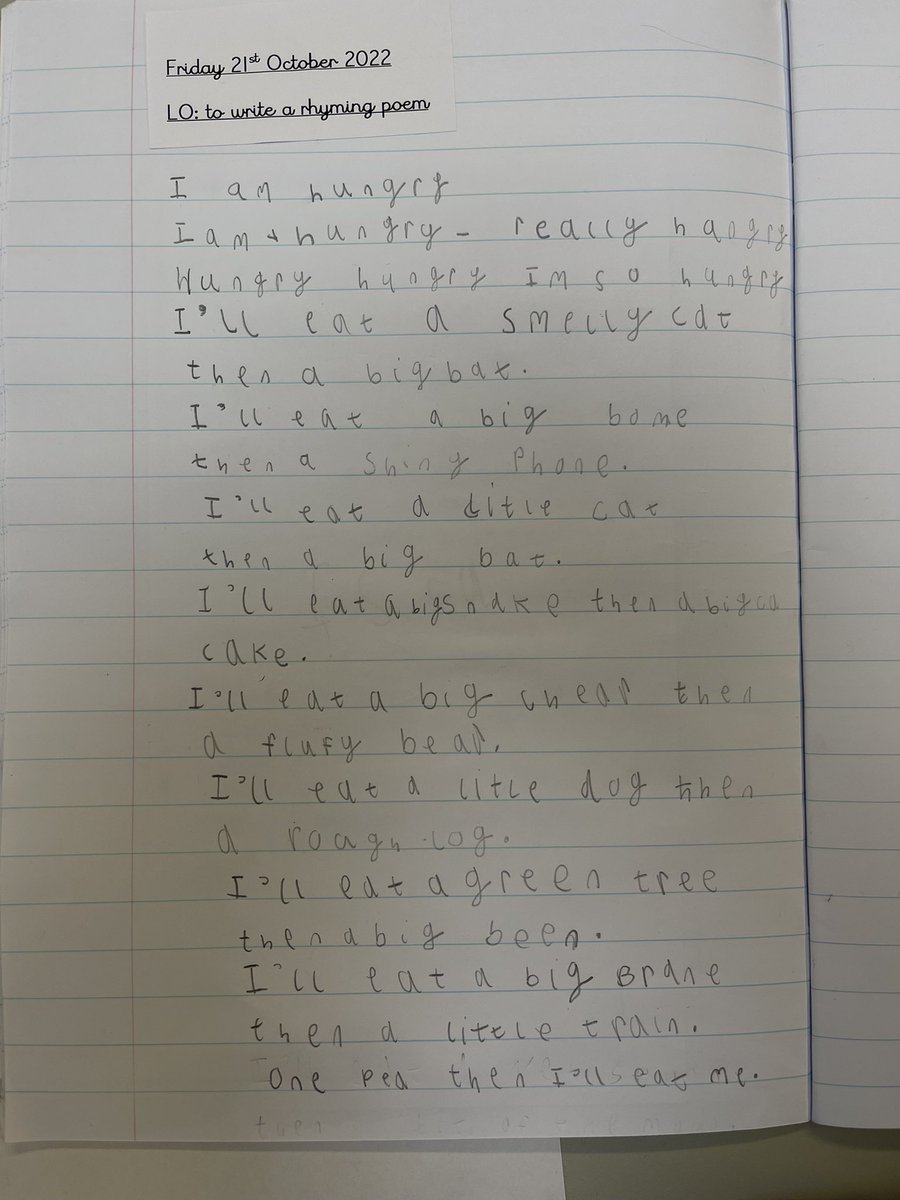 Friday 21st October 2022
LO: to write a rhyming poem
I am hungry
I am hungry - really hangry
Hungry hungry Im so hungry
I'll eat a smelly cat
then a big bat.
I'll eat a big bome
then a Shiny Phone.
I'll eat a litle cat
then a big bat.
I'll eat a big snake then a big ca
cake.
I'll eat a big chear then
a flufy bear.
I'll eat a litle dog then
a roagh log.
I'll eat a green tree
then a big been.
I'll eat a big Brane
then a little train.
One pea then I'll eat me.
then of the